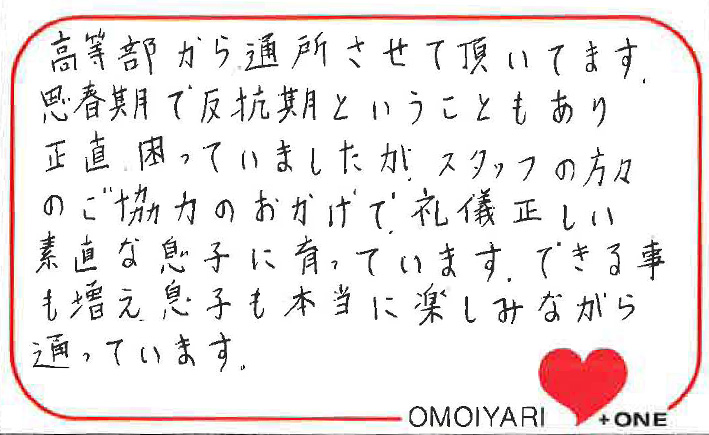 高等部から通所させて頂いてます.
思春期で反抗期ということもあり
正直、困っていましたが、スタッフの方々
のご協力のおかげで、礼儀正しい
素直な息子に育っています. できる事
も増え、息子も本当に楽しみながら
通っています.
OMOIYARI +ONE